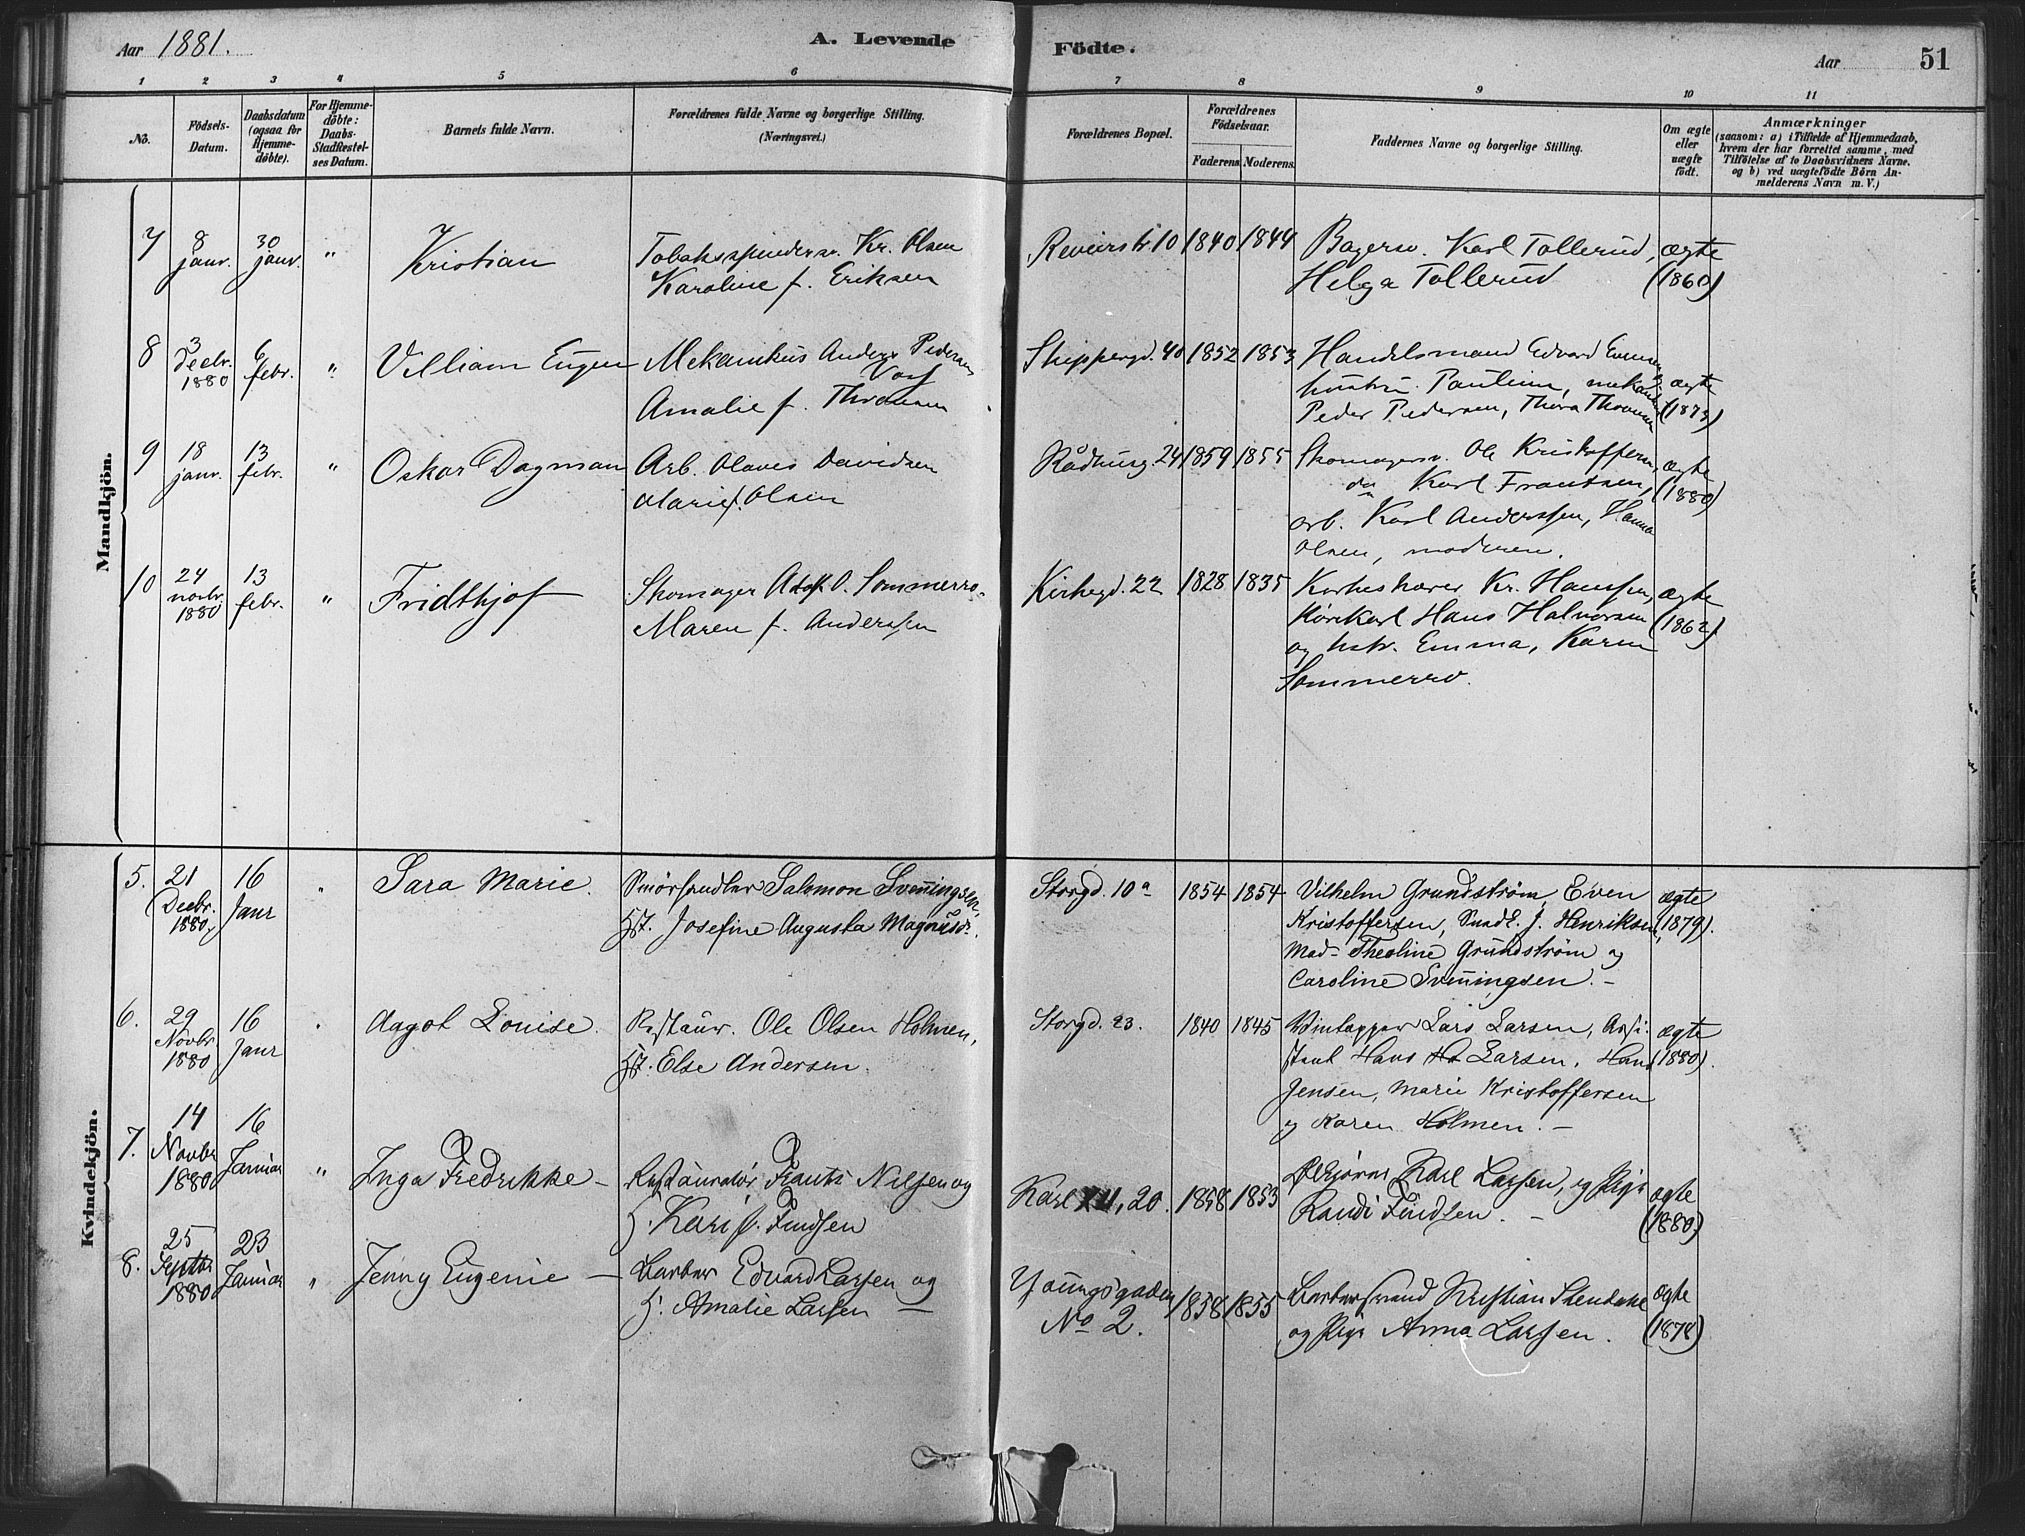 Aar 1881.
A. Levende
Födte.
Aar
51
1 2 3 4 5 6 7 8 9 10 11
No.
Födsels-
Datum.
Daabsdatum
(ogsaa for
Hjemme-
döbte).
For Hjemme-
döbte:
Daabs-
Stadfestel-
ses Datum.
Barnets fulde Navn.
Forældrenes fulde Navne og borgerlige Stilling.
(Næringsvei.)
Forældrenes Bopæl.
Forældrenes
Födselsaar.
Faderens. Moderens.
Faddernes Navne og borgerlige Stilling.
Om ægte
eller
uægte
födt.
Anmærkninger
(saasom: a) i Tilfælde af Hjemmedaab,
hvem der har forrettet samme, med
Tilföielse af to Daabsvidners Navne.
og b) ved uægtefödte Börn An-
melderens Navn m. V.)
Mandkjön.
7
8
janr.
30
janr.
"
Kristian
Tobaksspindersv. Kr. Olsen
Karoline f. Eriksen
Revierstr 10
1840
1844
Bagersv. Karl Tollerud,
Helga Tollerud
ægte
(1860)
8
3
Decbr.
1880
6
febr.
"
Villiam Eugen
Mekanikus Anders Pedersen
Amalie f. Thronsen
Skippergd. 40
1852
1853
Handelsmand Edvard
hustru Pauline,
Peder Pedersen, Thora
ægte
(1873)
9
18
janr.
13
febr.
"
Oskar Dagman
Arb. Olaves Davidsen
Marie f. Olsen
Rådhusg. 24
1859
1855
Skomagersv. Ole Kristoffersen,
do Karl Frantsen,
arb. Karl Anderssen, Hanna
Olsen, moderen.
ægte
(1880)
10
24
novbr.
1880
13
febr.
"
Fridthjof
Skomager Adolf O. Sommerro.
Maren f. Anderssen
Kirkegd. 22
1828
1835
Korkeskærer Kr. Hanssen,
Kørekarl Hans Halvorsen
og hstr. Emma, Karen
Sommerro.
ægte
(1862).
Kvindekjön.
5.
21
Decbr.
1880.
16
Janr
"
Sara Marie.
Smörhandler Salomon Svenningsen,
Hst. Josefine Augusta Magnusdr.
Storgd. 10a
1854
1854
Vilhelm Grundström, Even
Kristoffersen, Snedk. J. Henriksen,
Mad- Theoline Grundström og
Caroline Svenningsen. -
ægte
(1879).
6.
29
Novbr
1880
16
Janr
"
Aagot Louise.
Restaur. Ole Olsen Holmen,
Hst. Else Andersen.
Storgd. 23.
1840
1845
Vintapper Lars Larsen, Assi-
stent Hans Larsen, Hans
Jensen, Marie Kristoffersen
og Karen Holmen. -
ægte
(1880).
7.
14
Novbr
1880
16
Januar
"
Inga Fredrikke -
Restauratør Frants Nilsen og
H. Kari f. Findsen
Karl XII, 20.
1858
1853
Ølkjører Karl Larsen, og Pige
Randi Findsen. -
ægte
(1880)
8.
25
Septbr
1880
23
Januar
"
Jenny Eugenie -
Barber Edvard Larsen og
H. Amalie Larsen -
Youngsgaden
No 2.
1858
1855
Barbersvend Kristian
og Pige Anna Larsen.
ægte
(1878)